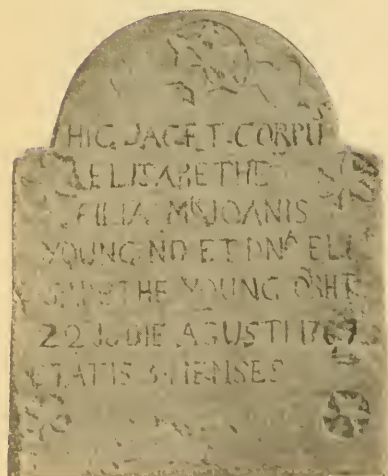 HIC JACET CORPU
ELISABETHE
FILIA MRI JOANIS
YOUNG ND ET DNA ELI
SABETHE YOUNG OBIIT
22do DIE AGUSTI 1767
ETATIS 5 MENSES